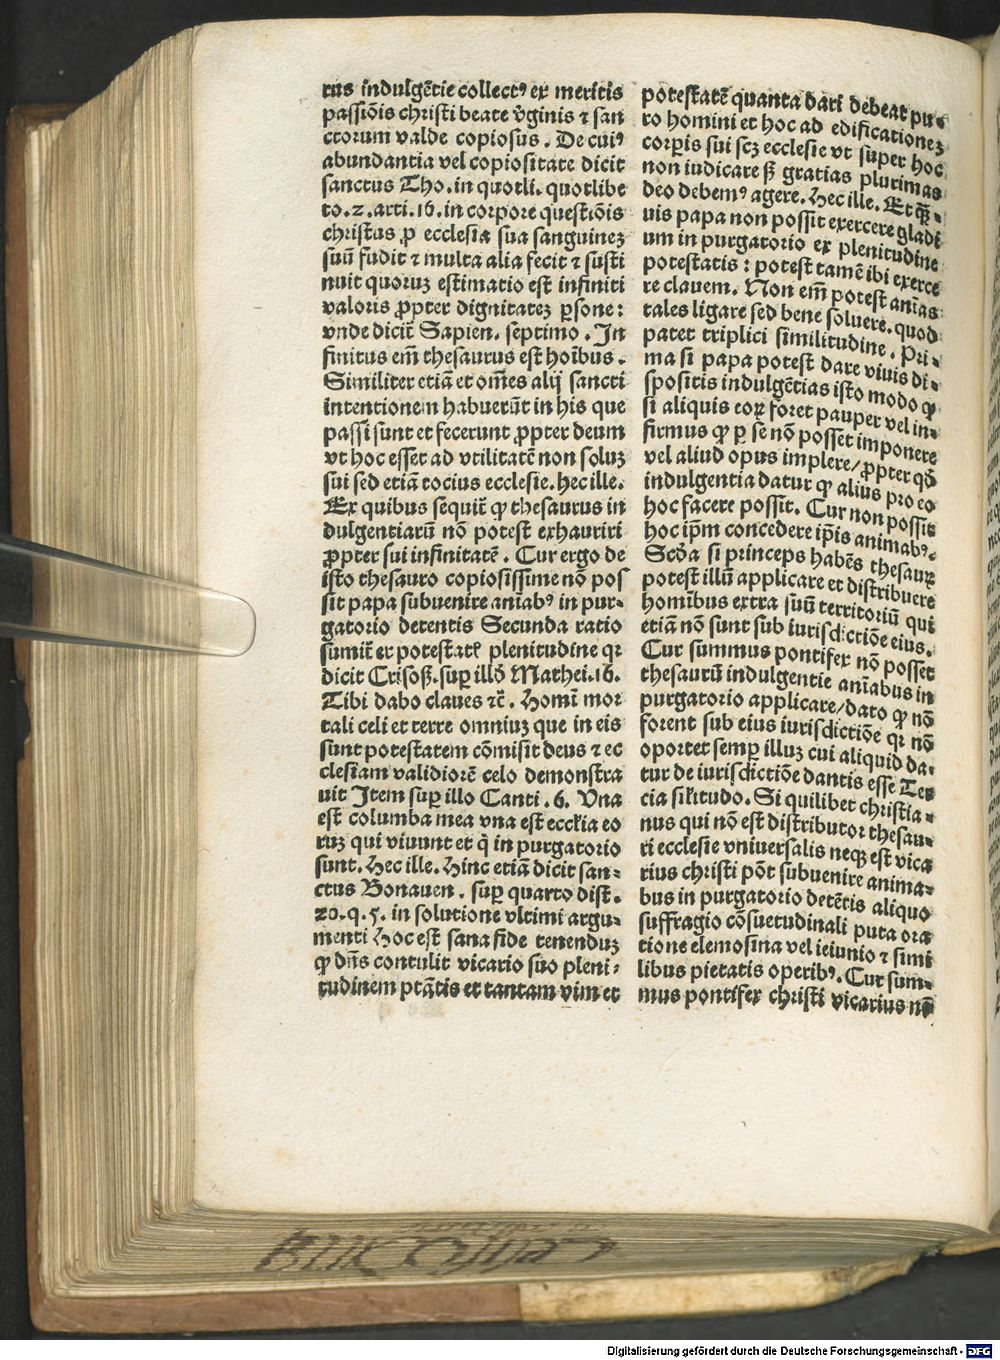 rus indulgẽtie collectꝰ ex meritis
passiõis christi beate v̾ginis ⁊ san
ctorum valde copiosus. De cuiꝰ
abundantia vel copiositate dicit
sanctus Tho. in quotli. quotlibe
to. 2. arti. 16. in corpore questiõis
christus ꝓ ecclesia sua sanguinez
suũ fudit ⁊ multa alia fecit ⁊ susti
nuit quoruz estimatio est infiniti
valoris ꝓpter dignitatez ꝑsone:
vnde dicit̃ Sapien. septimo. In
finitus em̃ thesaurus est hoĩbus.
Similiter etiã et om̃es alij sancti
intentionem habuerũt in his que
passi sunt et fecerunt ꝓpter deum
vt hoc esset ad vtilitatẽ non soluz
sui sed etiã tocius ecclesie. hec ille.
Ex quibus sequit̃ ꝙ thesaurus in
dulgentiarũ nõ potest exhauriri
ꝓpter sui infinitatẽ. Cur ergo de
isto thesauro copiosissime nõ pos
sit papa subuenire aniab̃ꝰ in pur-
gatorio detentis Secunda ratio
sumit̃ ex potestatꝭ plenitudine qꝛ
dicit Crisoſt. suꝑ illđ Mathei. 16.
Tibi dabo claues ⁊c̃. Homĩ mor
tali celi et terre omniuz que in eis
sunt potestatem cõmisit deus ⁊ ec
clesiam validiorẽ celo demonstra
uit Item suꝑ illo Canti. 6. Vna
est columba mea vna est eccl̃ia eo
ruz qui viuunt et q̃ in purgatorio
sunt. Hec ille. Hinc etiã dicit san-
ctus Bonauen. suꝑ quarto dist.
20. q. 5. in solutione vltimi argu-
menti Hoc est sana fide tenenduz
ꝙ dñs contulit vicario suo pleni-
tudinem ptãtis et tantam vim et
potestatẽ quanta dari debeat pu-
ro homini et hoc ad edificationez
corꝑis sui scz ecclesie vt super hoc
non iudicare sꝫ gratias plurimas
deo debemꝰ agere. Hec ille. Et q̃ꝫ-
uis papa non possit exercere gladi
um in purgatorio ex plenitudine
potestatis: potest tamẽ ibi exerce
re clauem. Non em̃ potest anĩas
tales ligare sed bene soluere. quod
patet triplici similitudine. Pri-
ma si papa potest dare viuis di-
spositis indulgẽtias isto modo ꝙ
si aliquis eoꝝ foret pauper vel in-
firmus ꝙ ꝑ se nõ posset imponere
vel aliud opus implere/ ꝓpter qđ
indulgentia datur ꝙ alius pro eo
hoc facere possit. Cur non possit
hoc ip̃m concedere ip̃is animabꝰ.
Scđa si princeps habẽs thesauꝝ
potest illũ applicare et distribuere
homĩbus extra suũ territoriũ qui
etiã nõ sunt sub iurisdictiõe eius.
Cur summus pontifex nõ posset
thesaurũ indulgentie anĩabus in
purgatorio applicare/ dato ꝙ nõ
forent sub eius iurisdictiõe qꝛ nõ
oportet semꝑ illuz cui aliquid da-
tur de iurisdictiõe dantis esse Ter
cia sil̃itudo. Si quilibet christia-
nus qui nõ est distributor thesau-
ri ecclesie vniuersalis neqꝫ est vica
rius christi põt subuenire anima-
bus in purgatorio detẽtis aliquo
suffragio cõsuetudinali puta ora
tione elemosina vel ieiunio ⁊ simi
libus pietatis operibꝰ. Cur sum-
mus pontifex christi vicarius nõ
Digitalisierung gefördert durch die Deutsche Forschungsgemeinschaft - DFG